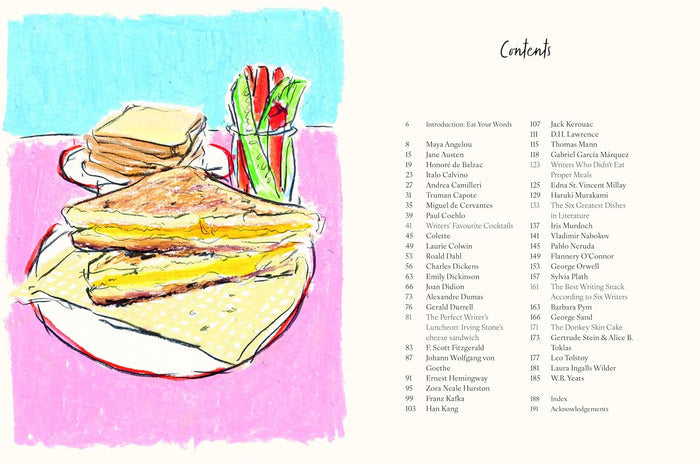 Contents
6 Introduction: Eat Your Words
8 Maya Angelou
15 Jane Austen
19 Honoré de Balzac
23 Italo Calvino
27 Andrea Camilleri
31 Truman Capote
35 Miguel de Cervantes
39 Paul Coehlo
41 Writers' Favourite Cocktails
45 Colette
49 Laurie Colwin
53 Roald Dahl
56 Charles Dickens
63 Emily Dickinson
66 Joan Didion
73 Alexandre Dumas
76 Gerald Durrell
81 The Perfect Writer's
Luncheon: Irving Stone's
cheese sandwich
83 F. Scott Fitzgerald
87 Johann Wolfgang von
Goethe
91 Ernest Hemingway
95 Zora Neale Hurston
99 Franz Kafka
103 Han Kang
107 Jack Kerouac
111 D.H. Lawrence
115 Thomas Mann
118 Gabriel García Márquez
123 Writers Who Didn't Eat
Proper Meals
125 Edna St. Vincent Millay
129 Haruki Murakami
133 The Six Greatest Dishes
in Literature
137 Iris Murdoch
141 Vladimir Nabokov
145 Pablo Neruda
149 Flannery O'Connor
153 George Orwell
157 Sylvia Plath
161 The Best Writing Snack
According to Six Writers
163 Barbara Pym
166 George Sand
171 The Donkey Skin Cake
173 Gertrude Stein & Alice B.
Toklas
177 Leo Tolstoy
181 Laura Ingalls Wilder
185 W.B. Yeats
188 Index
191 Acknowledgements